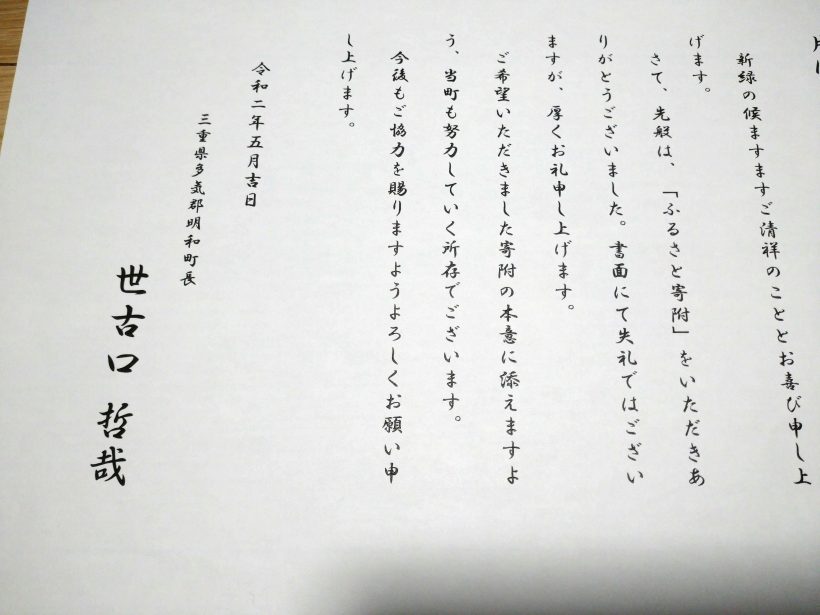 新緑の候ますますご清祥のこととお喜び申し上
げます。
さて、先般は、「ふるさと寄附」をいただきあ
りがとうございました。書面にて失礼ではござい
ますが、厚くお礼申し上げます。
ご希望いただきました寄附の本意に添えますよ
う、当町も努力していく所存でございます。
今後もご協力を賜りますようよろしくお願い申
し上げます。
令和二年五月吉日
三重県多気郡明和町長
世古口 哲哉